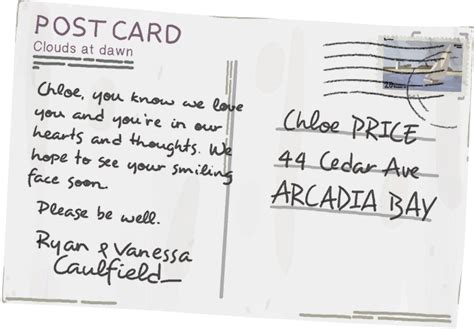 POST CARD
Clouds at dawn
Chloe, you know we love
you and you're in our
hearts and thoughts. We
hope to see your smiling
face soon.
Please be well.
Ryan & Vanessa
Caulfield
Chloe PRICE
44 Cedar Ave
ARCADIA BAY